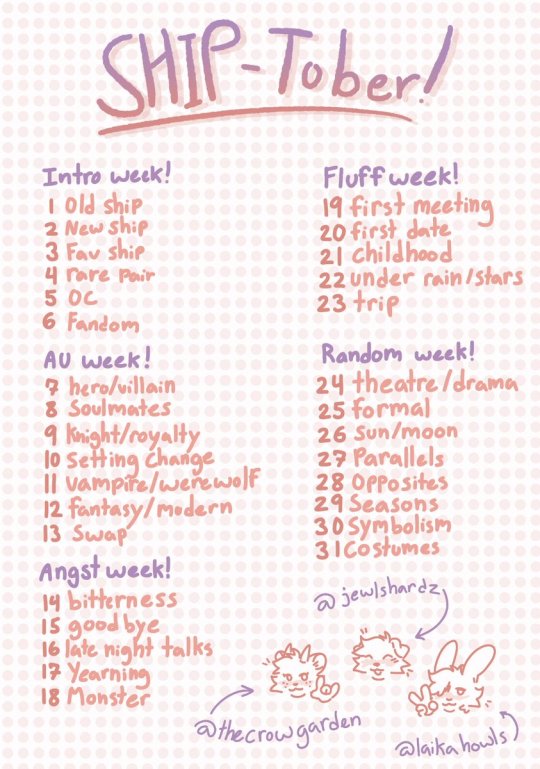 SHIP-Tober!
Intro week!
1 Old ship
2 New ship
3 Fav ship
4 rare pair
5 OC
6 Fandom
AU week!
7 hero/villain
8 Soulmates
9 Knight/royalty
10 Setting Change
11 vampire/werewolf
12 fantasy/modern
13 Swap
Angst week!
14 bitterness
15 goodbye
16 late night talks
17 Yearning
18 Monster
Fluff week!
19 first meeting
20 first date
21 childhood
22 under rain/stars
23 trip
Random week!
24 theatre/drama
25 formal
26 Sun/moon
27 Parallels
28 Opposites
29 Seasons
30 Symbolism
31 Costumes
@jewlshardz
@thecrowgarden
@laikahowls